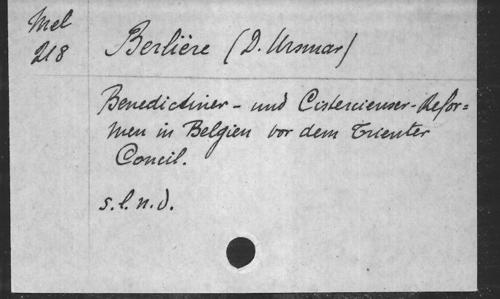 Mel
218
Berlière (D. Ursmar)
Benedictiner- und Cistercienser-Refor=
men in Belgien vor dem Trienter
Concil.
s.l.n.d.